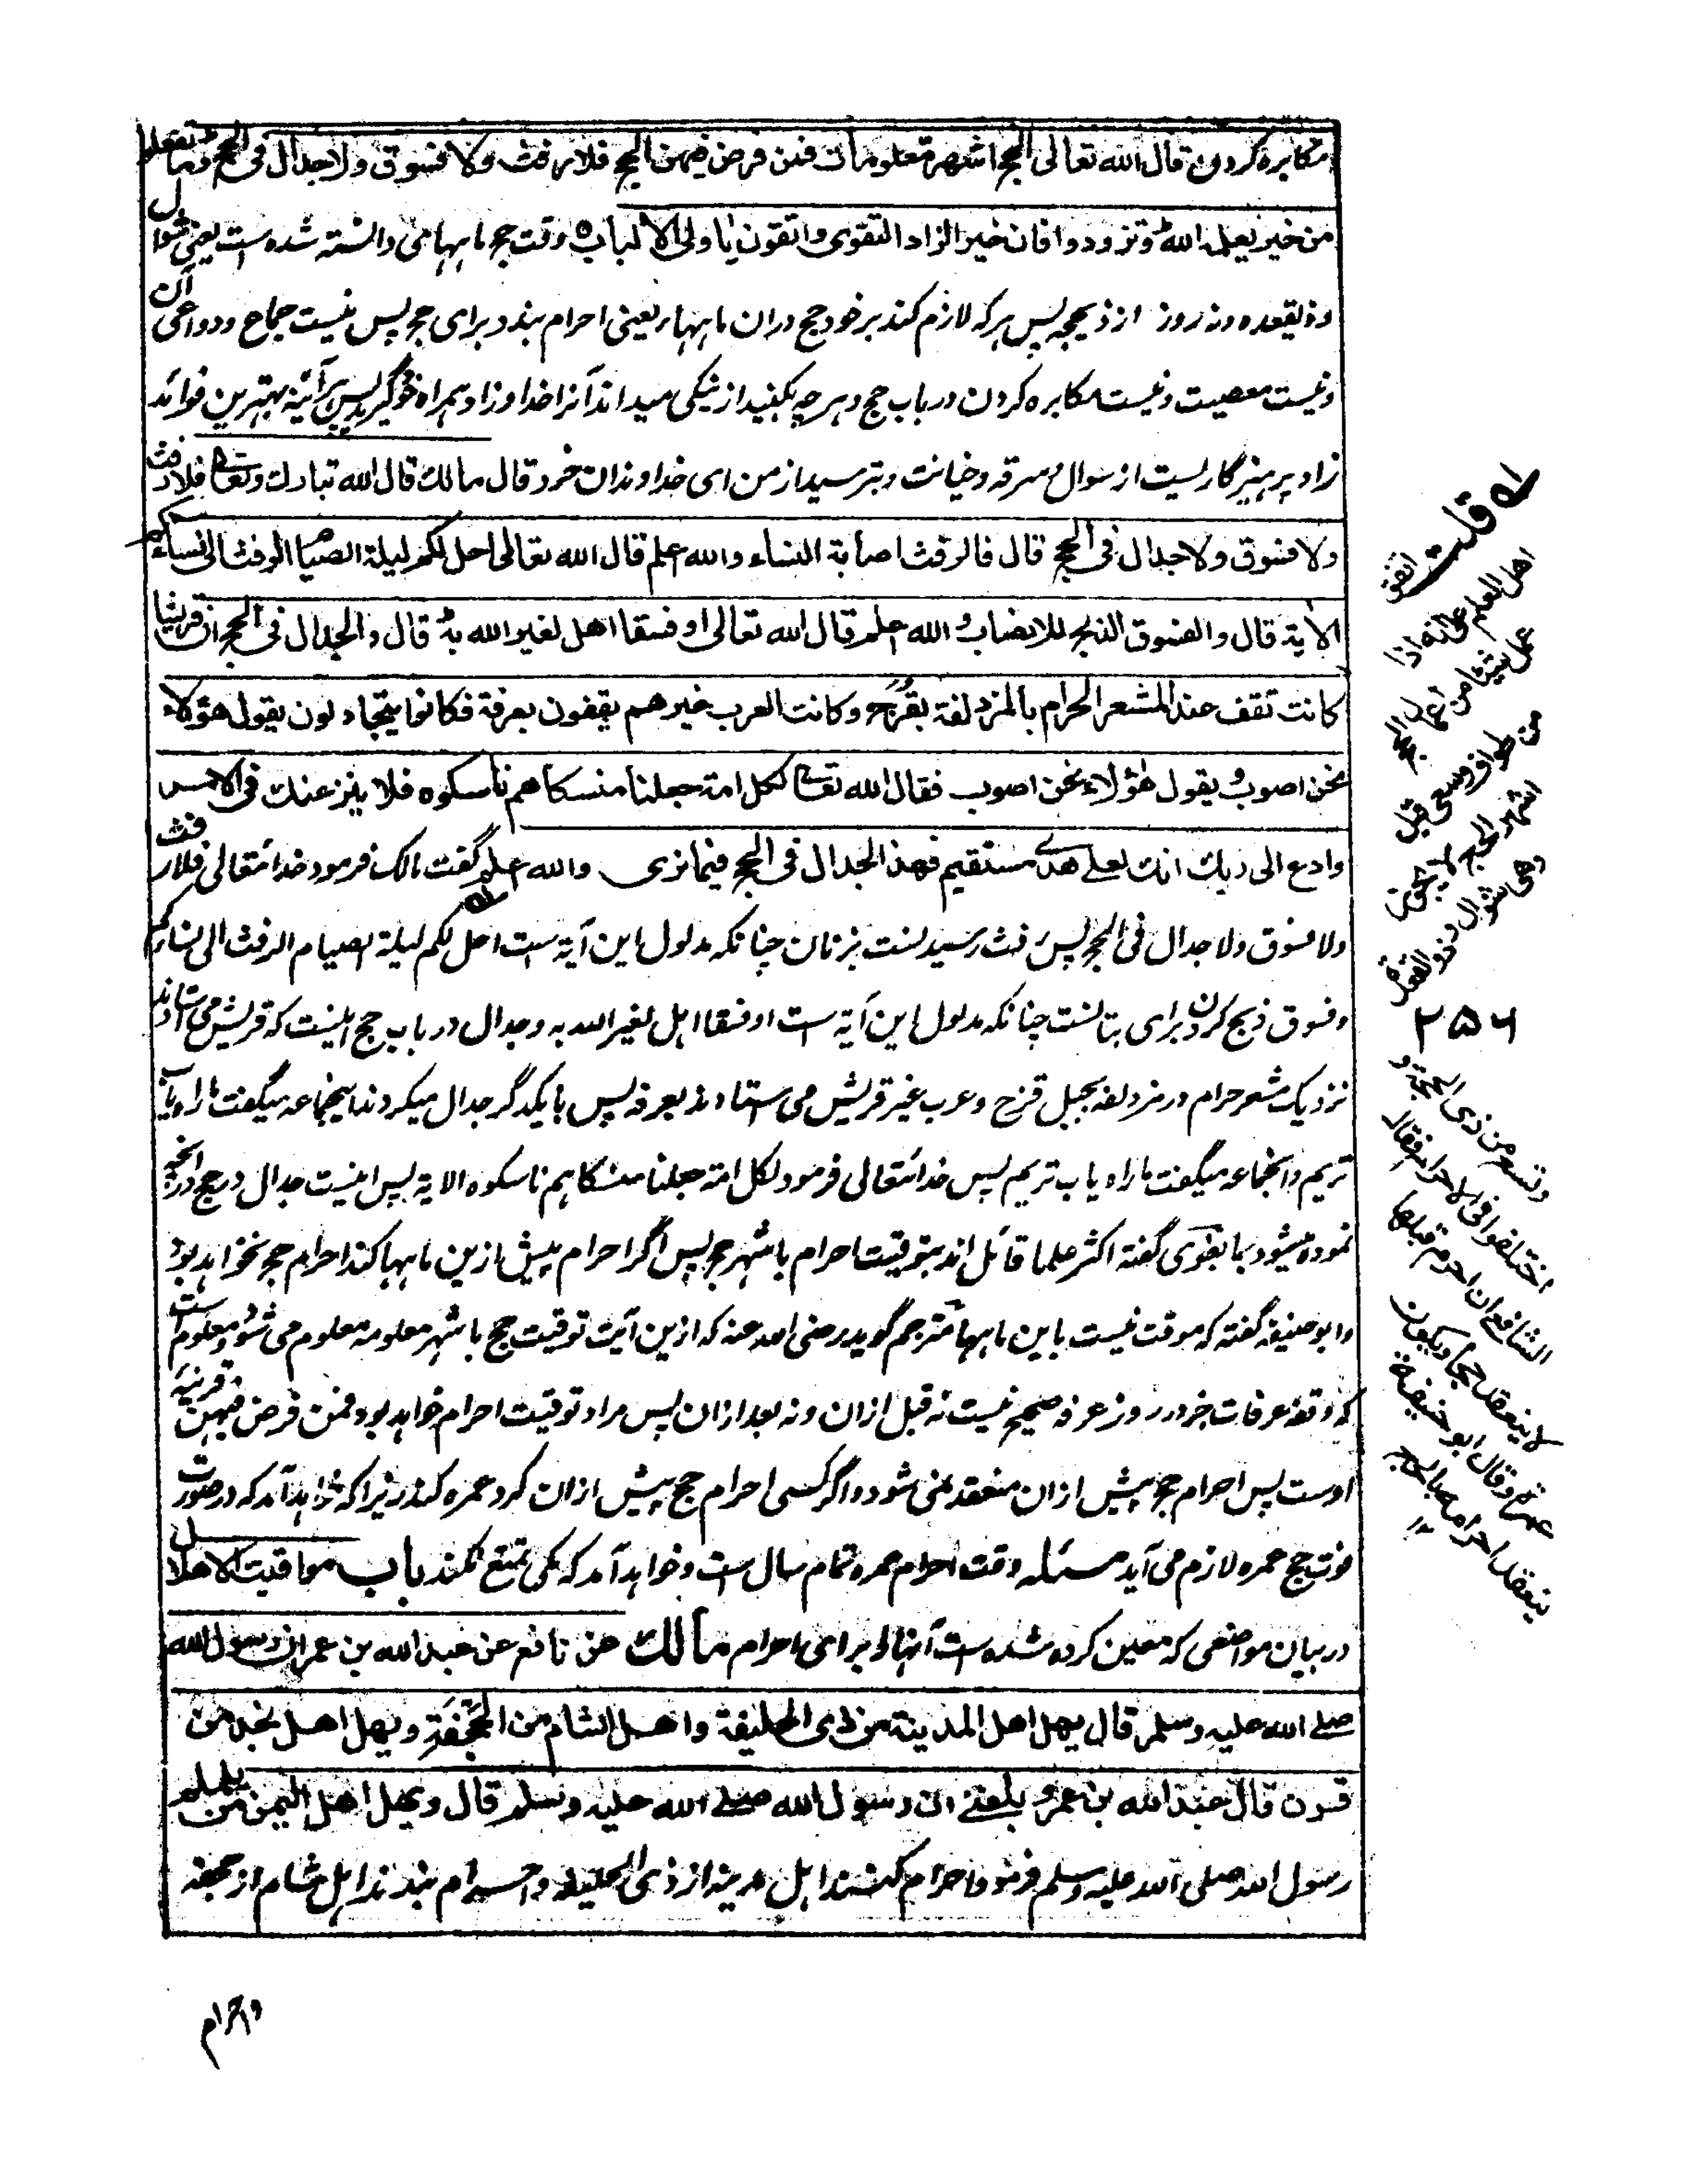 مکابره کردن قال الله تعالى الحج اشهر معلومات فمن فرض فيهن الحج فلا رفث ولا فسوق ولا جدال فى الحج وما تفعلوا
من خير يعلمه الله وتزودوا فان خير الزاد التقوى واتقون يا اولى الالباب ٥ وقت حج ماہہای دانسته شده ست یعنی شوال
وذیقعده ونه روز از ذیحجه پس ہر که لازم کند بر خود حج دران ماہہا یعنی احرام بندد برای حج پس نیست جماع ودواعی آن
ونیست معصیت ونیست مکابره کردن در باب حج وہر چه بکنید از نیکی میداند آنرا خدا وزاد ہمراه خود گیرید پس ہر آئینه بہترین فوائد
زاد پرہیزگاریست از سوال وسرقه وخیانت وبترسید از من ای خداوندان خرد قال مالك قال الله تبارك وتعالى فلا رفث
ولا فسوق ولا جدال فى الحج قال فالرفث اصابة النساء والله اعلم قال الله تعالى احل لكم ليلة الصيام الرفث الى نساءكم
الاية قال والفسوق الذبح للانصاب والله اعلم قال الله تعالى او فسقا اهل لغير الله به قال والجدال فى الحج ان قريشا
كانت تقف عند المشعر الحرام بالمزدلفة بقزح وكانت العرب غيرهم يقفون بعرفة فكانوا يتجادلون يقول هؤلاء
نحن اصوب ويقول هؤلاء نحن اصوب فقال الله تعالى لكل امة جعلنا منسكا هم ناسكوه فلا ينزعنك فى الامر
وادع الى ربك انك لعلى هدى مستقيم فهذا الجدال فى الحج فيما نرى والله اعلم گفت مالک فرمود خدائتعالی فلا رفث
ولا فسوق ولا جدال فی الحج پس رفث رسیدنست بزنان چنانکه مدلول این آیة ست احل لکم لیلة الصیام الرفث الی نسائکم
وفسوق ذبح کردن برای بتانست چنانکه مدلول این آیة ست او فسقا اہل لغیر الله به وجدال در باب حج اینست که قریش می استادند
نزدیک مشعر حرام در مزدلفه بجبل قزح وعرب غیر قریش می استادند بعرفه پس با یکدگر جدال میکردند اینجماعه میگفت ما راه یاب
تریم وآنجماعه میگفت ما راه یاب تریم پس خدائتعالی فرمود لکل امة جعلنا منسکا ہم ناسکوه الایة پس اینست جدال در حج در آنچه
نموده میشود بما بغوی گفته اکثر علما قائل اند بتوقیت احرام باشہر حج پس اگر احرام پیش ازین ماہہا کند احرام حج نخواہد بود
وابو حنیفه گفته که موقت نیست باین ماہہا مترجم گوید رضی الله عنه که ازین آیت توقیت حج باشہر معلومه معلوم می شود ومعلوم است
که وقفه عرفات جز در روز عرفه صحیح نیست نه قبل ازان ونه بعد ازان پس مراد توقیت احرام خواہد بود وفمن فرض فیہن قرینه
اوست پس احرام حج پیش ازان منعقد نمی شود واگر کسی احرام حج پیش ازان کرد عمره کند زیرا که خواہد آمد که در صورت
فوت حج عمره لازم می آید مسئله وقت احرام عمره تمام سال ست وخواہد آمد که مکی تمتع نکند باب مواقيت الاهلال
در بیان مواضعی که معین کرده شده ست آنہا را برای احرام مالك عن نافع عن عبد الله بن عمر ان رسول الله
صلى الله عليه وسلم قال يهل اهل المدينة من ذى الحليفة واهل الشام من الجحفة ويهل اهل نجد من
قرن قال عبد الله بن عمر وبلغنى ان رسول الله صلى الله عليه وسلم قال ويهل اهل اليمن من يلملم
رسول الله صلی الله علیه وسلم فرمود احرام کنند اہل مدینه از ذی الحلیفه واحرام بندند اہل شام از جحفه
واحرام
له قلت اتفق
اهل العلم على انه اذا
عمل شيئا من اعمال الحج
من طواف وسعى قبل
اشهر الحج لا يجزئ
وهى شوال وذو القعدة
٢٥٦
وتسع من ذى الحجة و
اختلفوا فى الاحرام فقال
الشافعى ان احرم قبلها
لا ينعقد حجا ويكون
عمرة وقال ابو حنيفة
ينعقد احرامه بالحج
١٢